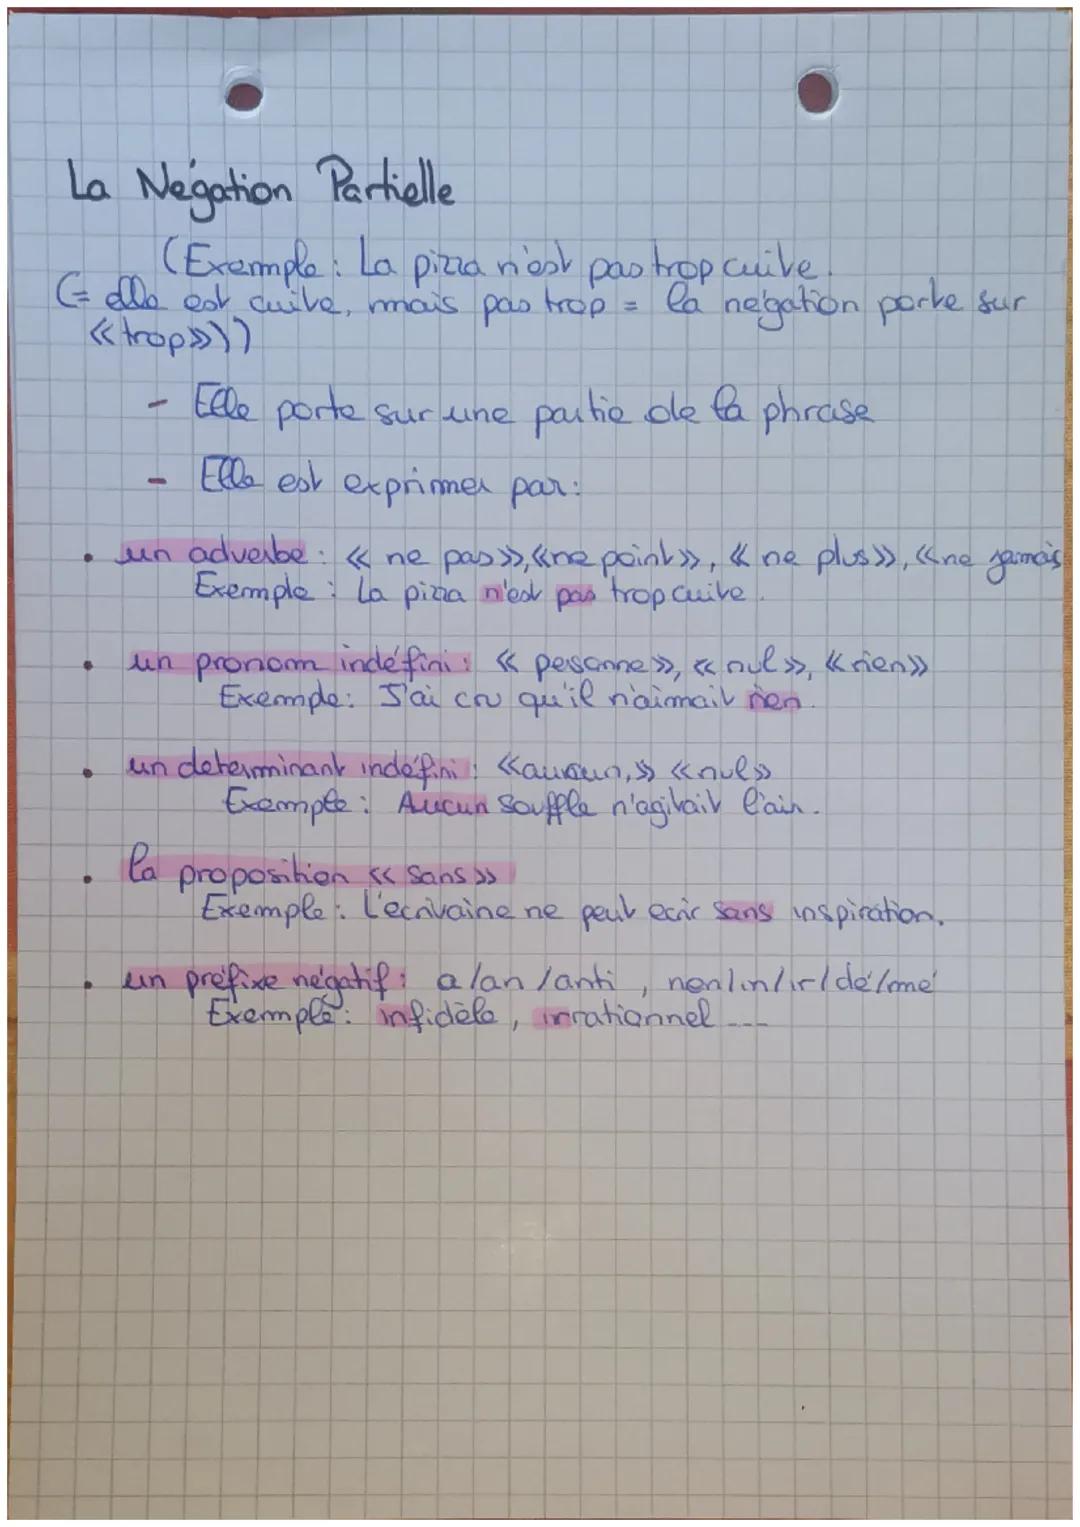 La Négation Partielle
(Exemple : La pizza n'est pas trop cuite.
(= elle est cuite, mais pas trop = la négation porte sur
«trop»))
- Elle porte sur une partie de la phrase
- Elle est exprimer par :
• un adverbe : « ne pas», «ne point», « ne plus», «ne jamais
Exemple : La pizza n'est pas trop cuite.
• un pronom indéfini : « pesonne», «nul», «rien»
Exemple : J'ai cru qu'il n'aimait rien.
• un determinant indéfini : «aucun,» «nul»
Exemple : Aucun souffle n'agitait l'air.
• la proposition « sans»
Exemple : L'ecrivaine ne peut ecrir sans inspiration.
• un préfixe négatif : a/an/anti , non/in/ir/dé/mé
Exemple : infidèle, irrationnel ---